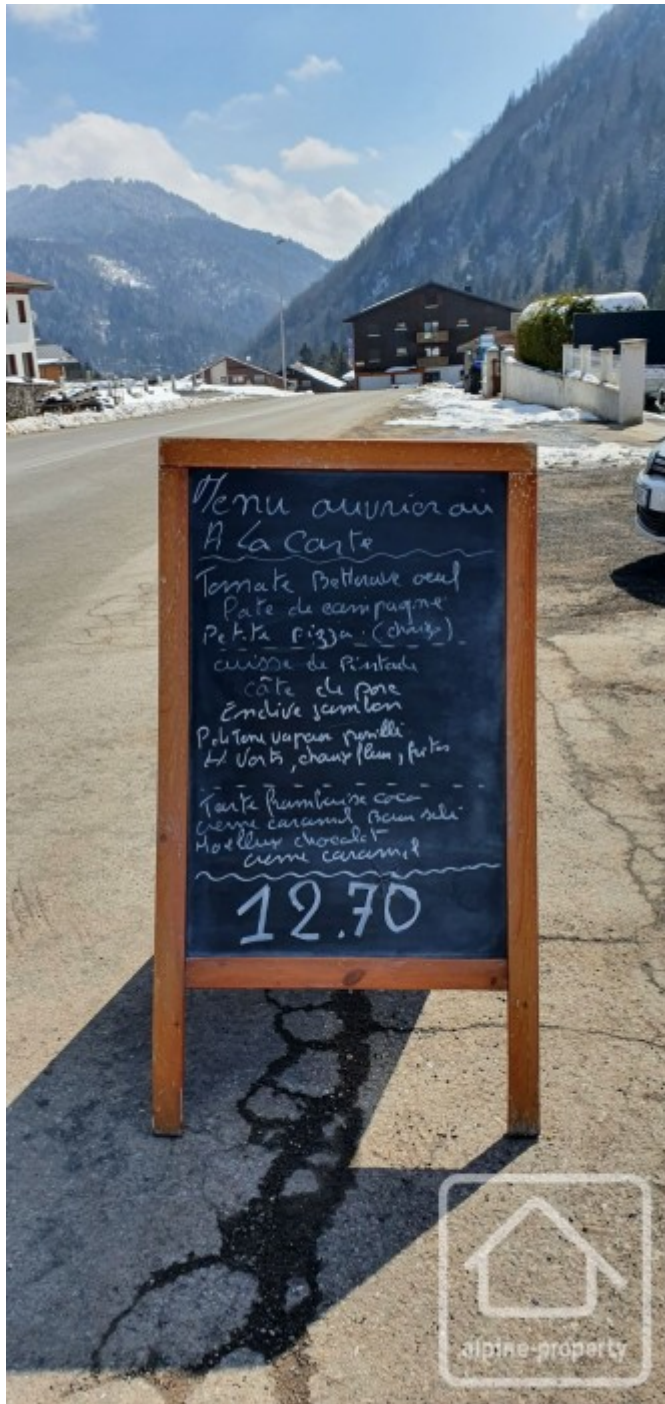 Menu ouvrier ou
A La Carte
Tomate Betterave oeuf
Pate de campagne
Petite pizza (chorizo)
cuisse de Pintade
côte de porc
Endive jambon
vapeur
H Verts, choux fleur, frites
Tarte framboise coco
creme caramel Beurre salé
Moelleux chocolat
creme caramel
12.70
alpine-property